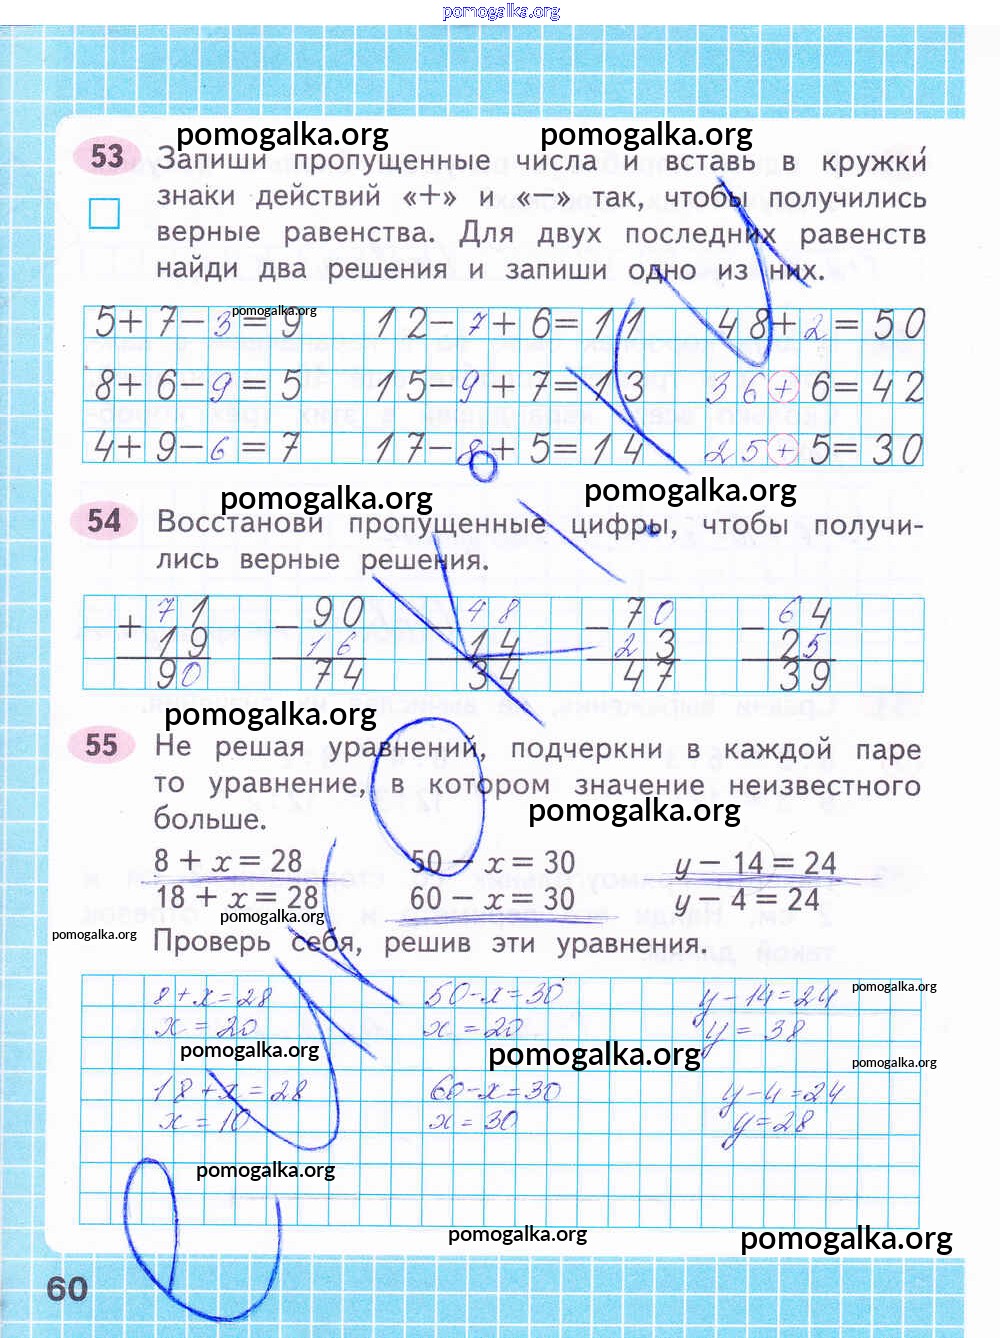 pomogalka.org
pomogalka.org pomogalka.org
53 Запиши пропущенные числа и вставь в кружки
знаки действий «+» и «−» так, чтобы получились
верные равенства. Для двух последних равенств
найди два решения и запиши одно из них.
pomogalka.org
5+7−3=9 12−7+6=11 48+2=50
8+6−9=5 15−9+7=13 36+6=42
4+9−6=7 17−8+5=14 25+5=30
pomogalka.org pomogalka.org
54 Восстанови пропущенные цифры, чтобы получи-
лись верные решения.
71 90 48 70 64
+ − − − −
19 16 14 23 25
90 74 34 47 39
pomogalka.org
55 Не решая уравнений, подчеркни в каждой паре
то уравнение, в котором значение неизвестного
больше.
pomogalka.org
8 + x = 28 50 − x = 30 y − 14 = 24
18 + x = 28 60 − x = 30 y − 4 = 24
pomogalka.org
pomogalka.org
Проверь себя, решив эти уравнения.
pomogalka.org
8+x=28 50-x=30 y-14=24
x=20 x=20 y=38
pomogalka.org pomogalka.org pomogalka.org
18+x=28 60-x=30 y-4=24
x=10 x=30 y=28
pomogalka.org
pomogalka.org pomogalka.org
60